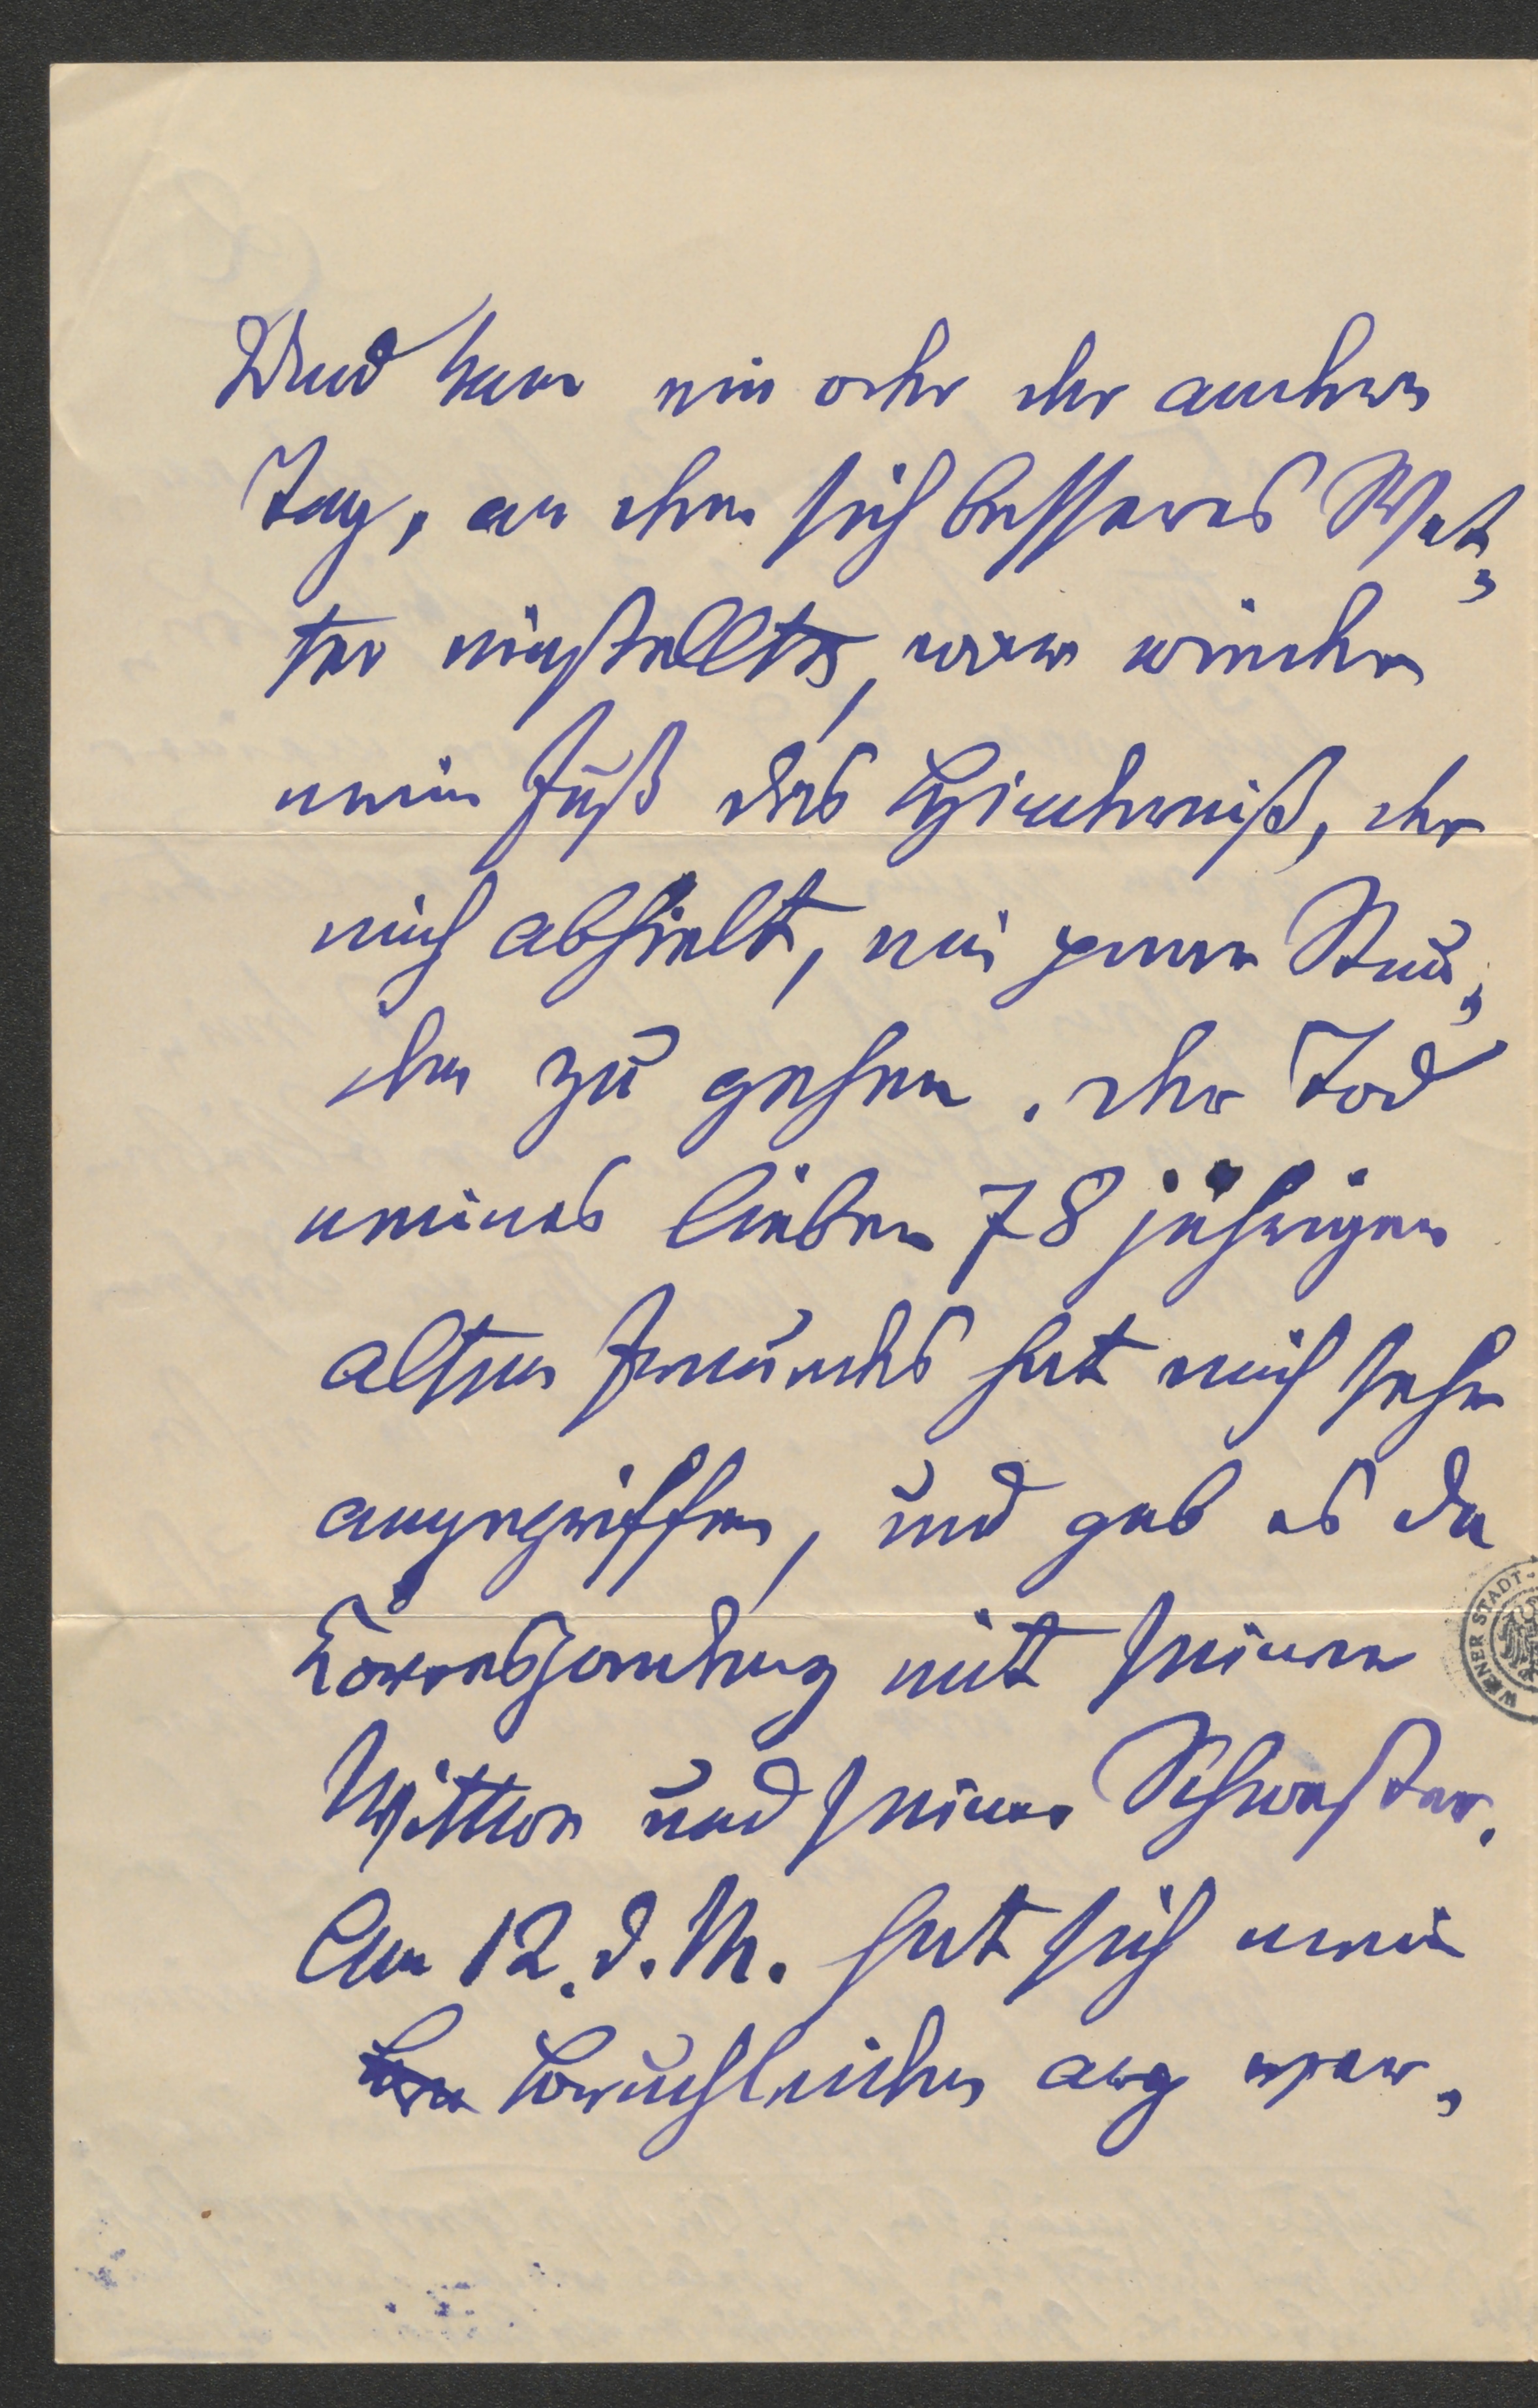 Und kam ein oder der andere
Tag, an dem sich besseres Wet„
ter einstellte, war wieder
mein Fuß das Hinderniß, der
mich abhielt, ein paar Stun„
den zu gehen. Der Tod
meines lieben 78 jährigen
alten Freundes hat mich sehr
angegriffen, und gab es da
Korrespondenz mit seiner
Witwe und seiner Schwester.
Am 12. d. M. hat sich mein
Bruchleiden arg
WIENER STADT-